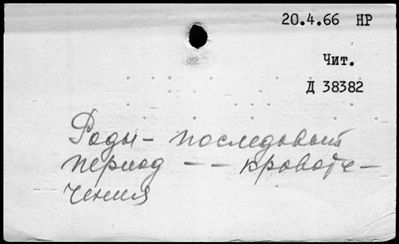 20.4.66 НР
Чит.
Д 38382
Роды – последовый
период – – кровоте–
чения